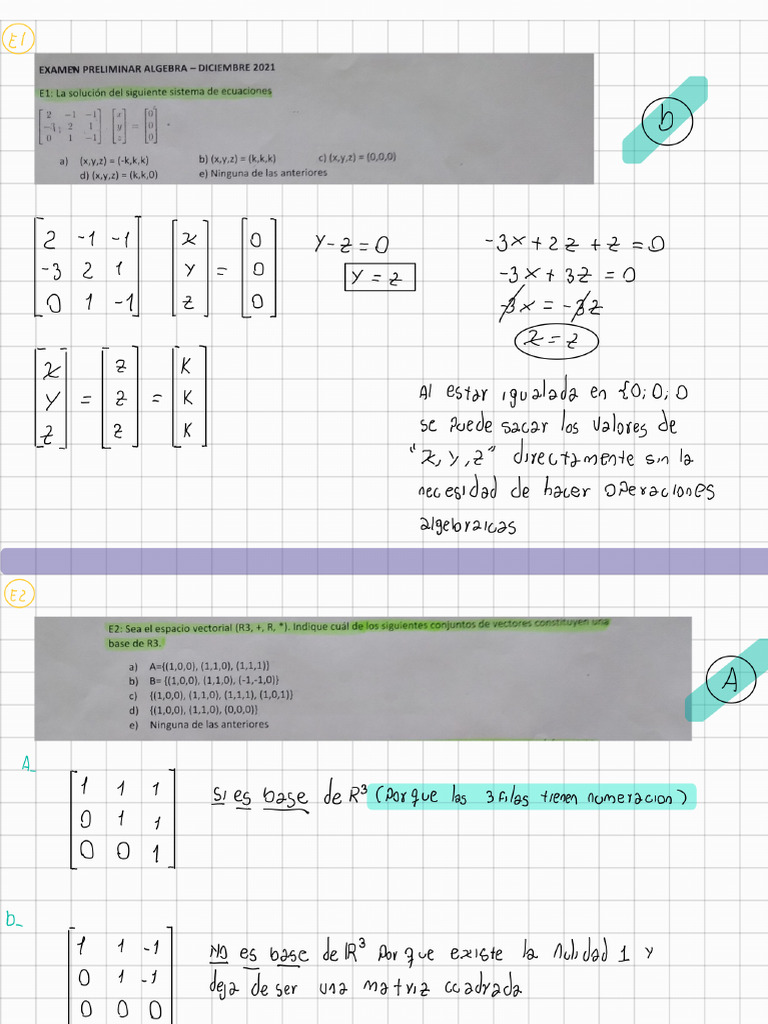 E1
EXAMEN PRELIMINAR ALGEBRA – DICIEMBRE 2021
E1: La solución del siguiente sistema de ecuaciones
2 -1 -1 x 0
-3 2 1 y = 0
0 1 -1 z 0
a) (x,y,z) = (-k,k,k) b) (x,y,z) = (k,k,k) c) (x,y,z) = (0,0,0)
d) (x,y,z) = (k,k,0) e) Ninguna de las anteriores
b
2 -1 -1 x 0
-3 2 1 y = 0
0 1 -1 z 0
y-z=0
y = z
-3x+2z+z=0
-3x+3z=0
-3x=-3z
x=z
x z K
y = z = K
z z K
Al estar igualada en {0; 0; 0
se puede sacar los valores de
"x, y, z" directamente sin la
necesidad de hacer operaciones
algebraicas
E2
E2: Sea el espacio vectorial (R3, +, R, *). Indique cuál de los siguientes conjuntos de vectores constituyen una
base de R3.
a) A={(1,0,0), (1,1,0), (1,1,1)}
b) B= {(1,0,0), (1,1,0), (-1,-1,0)}
c) {(1,0,0), (1,1,0), (1,1,1), (1,0,1)}
d) {(1,0,0), (1,1,0), (0,0,0)}
e) Ninguna de las anteriores
A
A_
1 1 1
0 1 1
0 0 1
SI es base de R³ (Porque las 3 filas tienen numeracion)
b_
1 1 -1
0 1 -1
0 0 0
NO es base de R³ Porque existe la nulidad 1 y
deja de ser una matriz cuadrada